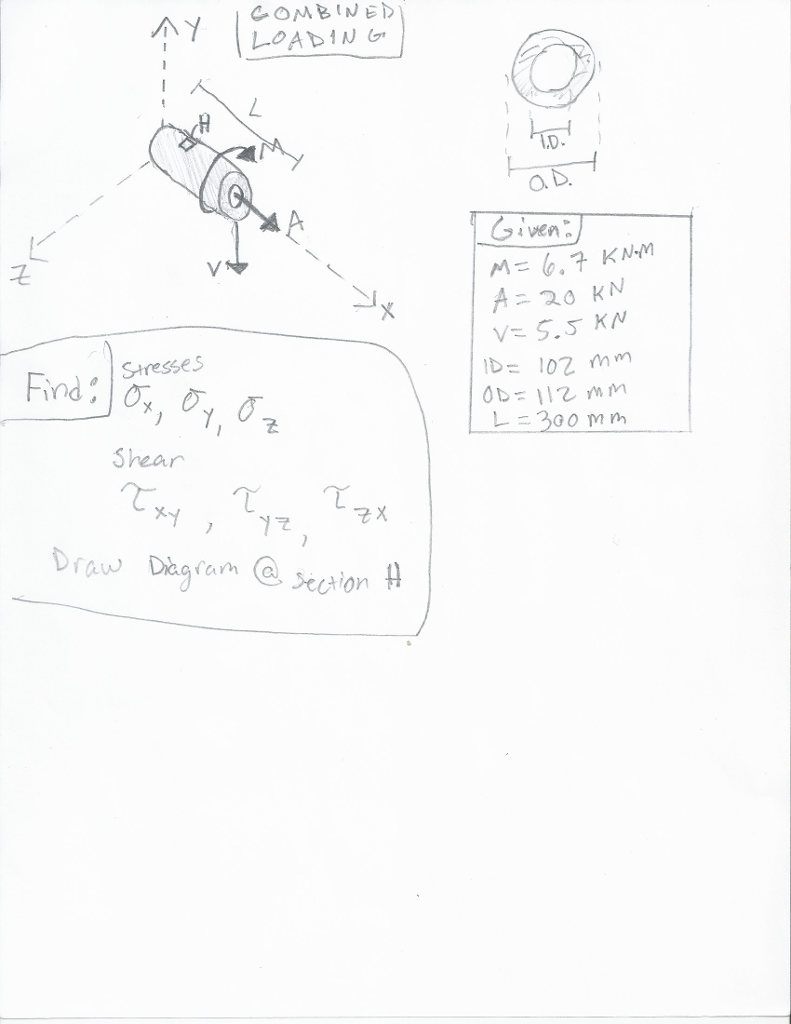 COMBINED
LOADING
Y
L
H
M
A
V
Z
X
I.D.
O.D.
Given:
M = 6.7 KN·M
A = 20 KN
V = 5.5 KN
ID = 102 mm
OD = 112 mm
L = 300 mm
Find:
Stresses
σx, σy, σz
Shear
τxy, τyz, τzx
Draw Diagram @ section H